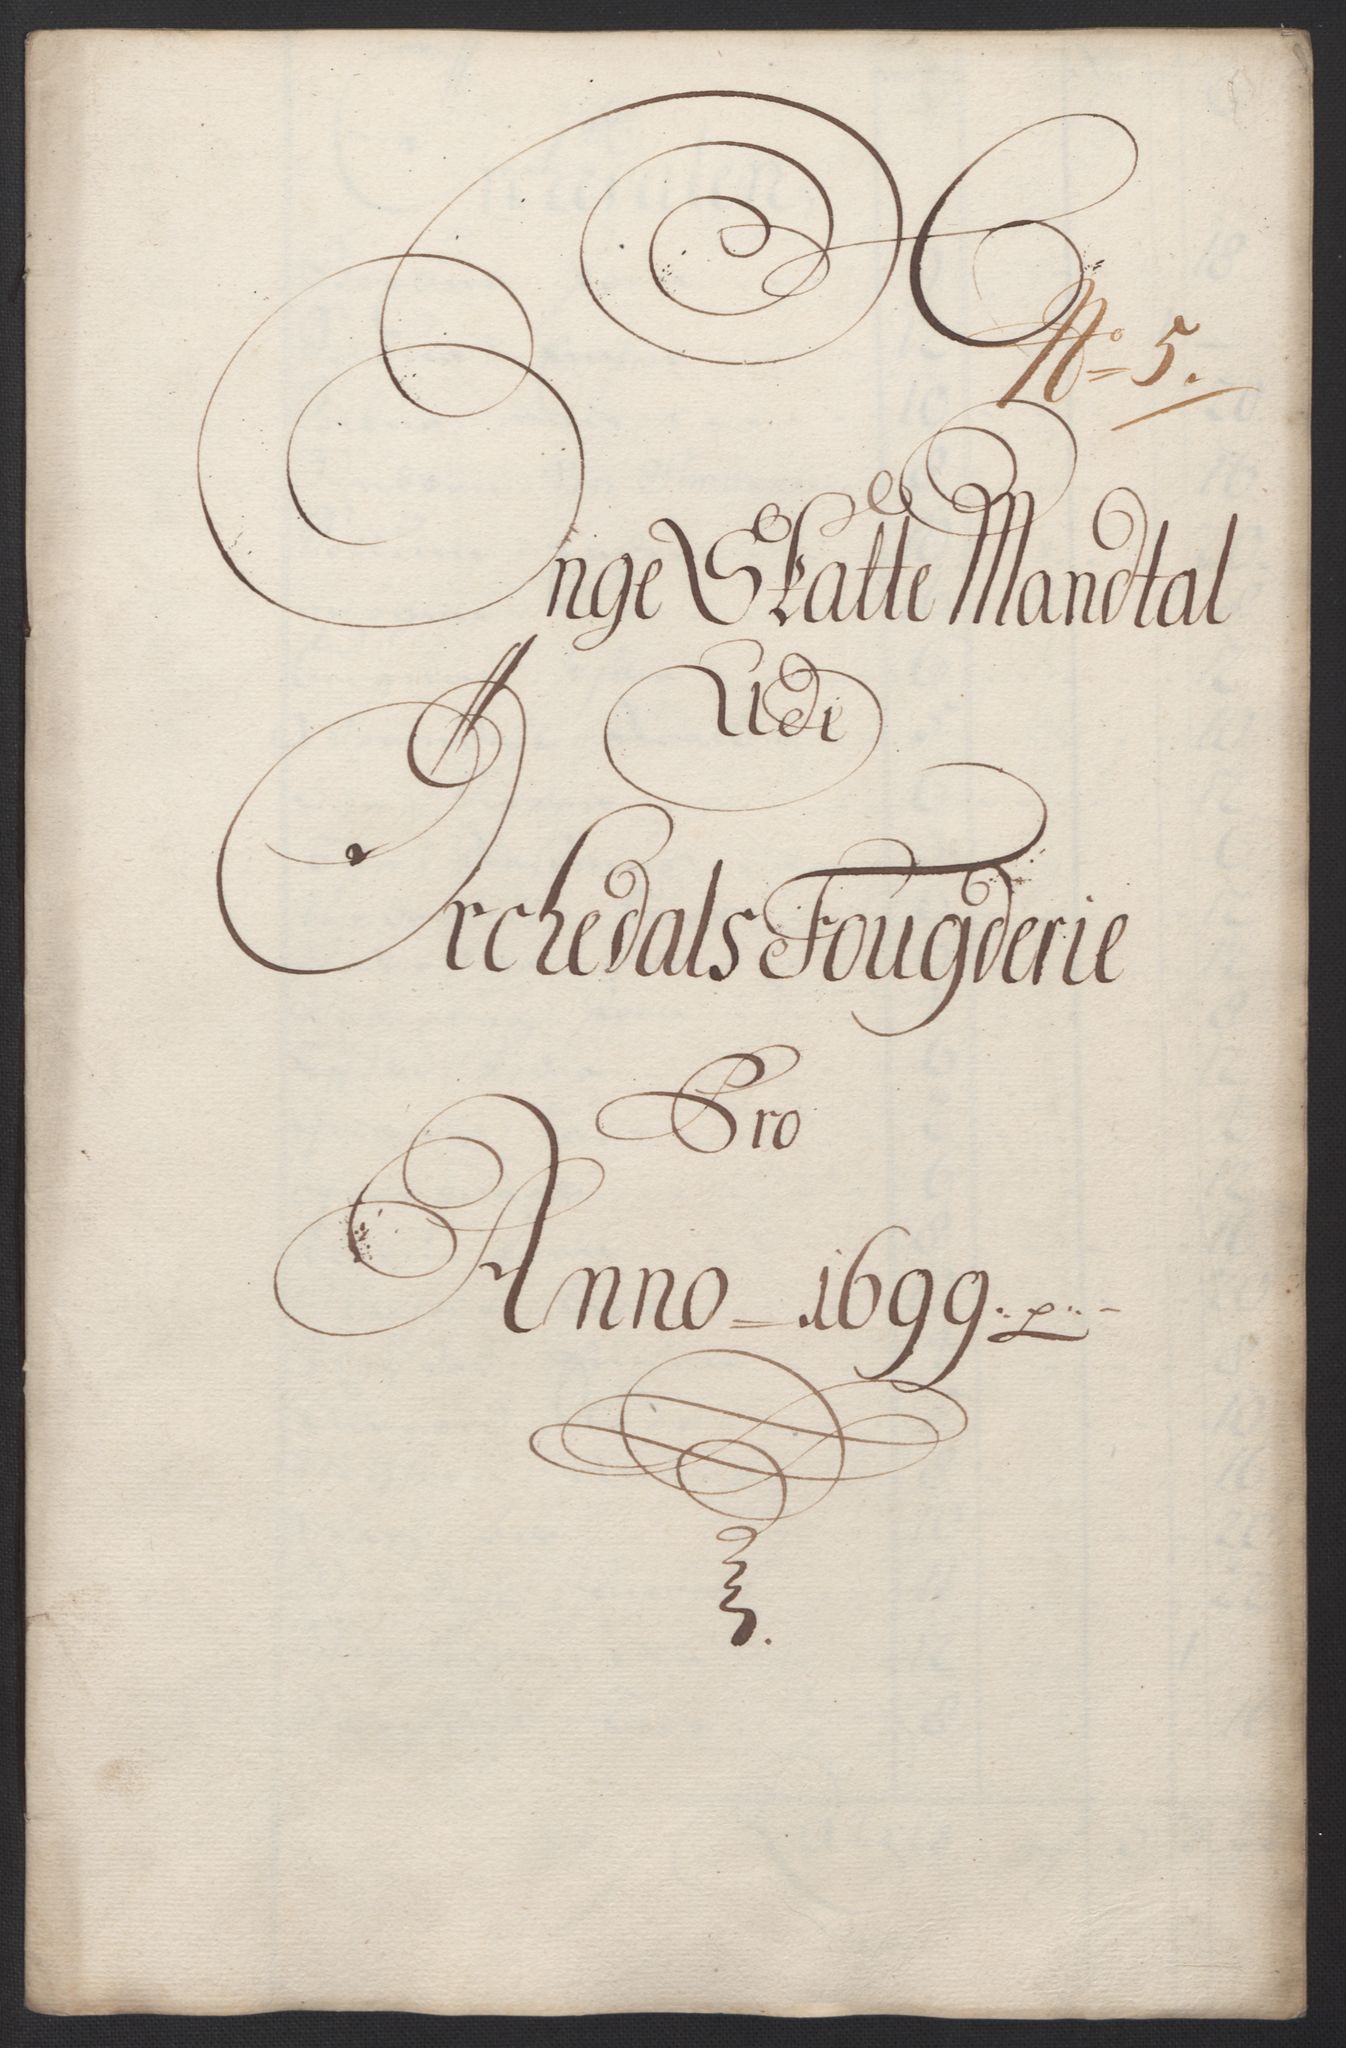 No 5.
Enge Skatte Mandtal
Udi
Orchedals Fougderie
Pro
Anno 1699.